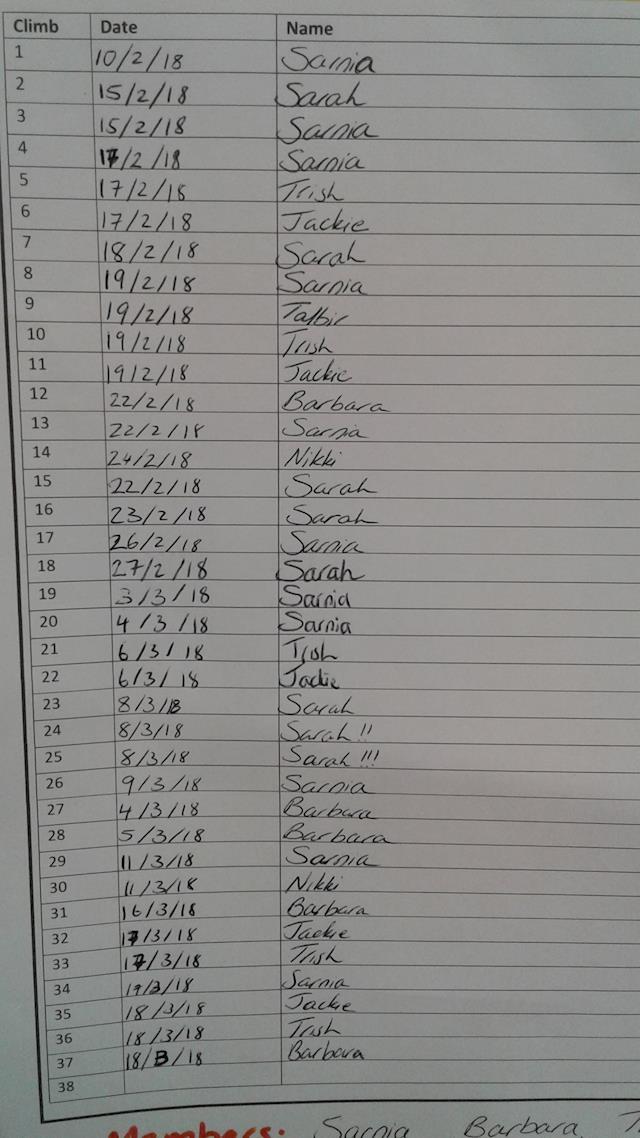 Climb Date Name
1 10/2/18 Sarnia
2 15/2/18 Sarah
3 15/2/18 Sarnia
4 17/2/18 Sarnia
5 17/2/18 Trish
6 17/2/18 Jackie
7 18/2/18 Sarah
8 19/2/18 Sarnia
9 19/2/18 Talbir
10 19/2/18 Trish
11 19/2/18 Jackie
12 22/2/18 Barbara
13 22/2/18 Sarnia
14 24/2/18 Nikki
15 22/2/18 Sarah
16 23/2/18 Sarah
17 26/2/18 Sarnia
18 27/2/18 Sarah
19 3/3/18 Sarnia
20 4/3/18 Sarnia
21 6/3/18 Trish
22 6/3/18 Jackie
23 8/3/18 Sarah
24 8/3/18 Sarah!!
25 8/3/18 Sarah!!!
26 9/3/18 Sarnia
27 4/3/18 Barbara
28 5/3/18 Barbara
29 11/3/18 Sarnia
30 11/3/18 Nikki
31 16/3/18 Barbara
32 17/3/18 Jackie
33 17/3/18 Trish
34 17/3/18 Sarnia
35 18/3/18 Jackie
36 18/3/18 Trish
37 18/3/18 Barbara
38
Members: Sarnia Barbara